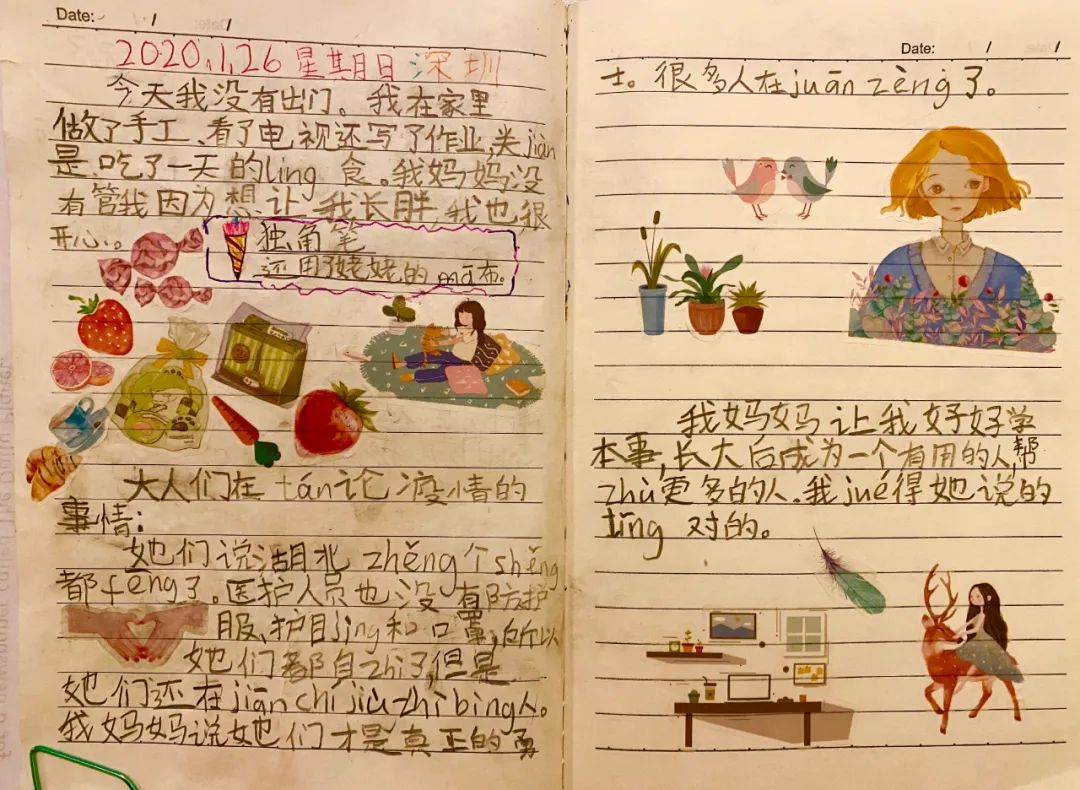 Date: / /
2020.1.26 星期日 深圳
今天我没有出门。我在家里
做了手工、看了电视还写了作业,关jiàn
是吃了一天的ling食。我妈妈没
有管我因为想让我长胖,我也很
开心。
独角笔
还用了姥姥的mā布。
大人们在tán论疫情的
事情:
她们说湖北zhěng个shěng
都fēng了。医护人员也没有防护
服、护目jìng和口罩,所以
她们都自zhì了,但是
她们还在jiān chí jiù zhì bìng人。
我妈妈说她们才是真正的勇
Date: / /
士。很多人在juān zèng了。
我妈妈让我好好学
本事,长大后成为一个有用的人,帮
zhù更多的人。我jué得她说的
tǐng对的。